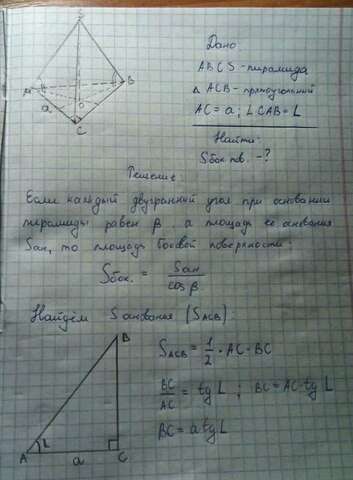 S
A
B
C
O
a
Дано:
ABCS - пирамида
Δ ACB - прямоугольный
AC = a ; ∠CAB = L
Найти:
Sбок пов. - ?
Решение:
Если каждый двугранный угол при основании
пирамиды равен β, а площадь ее основания
Sосн, то площадь боковой поверхности:
Sбок. = Sосн / cos β
Найдём S основания (SACB):
SACB = 1/2 · AC · BC
BC/AC = tg L ; BC = AC·tg L
BC = a tg L
B
A
L
a
C